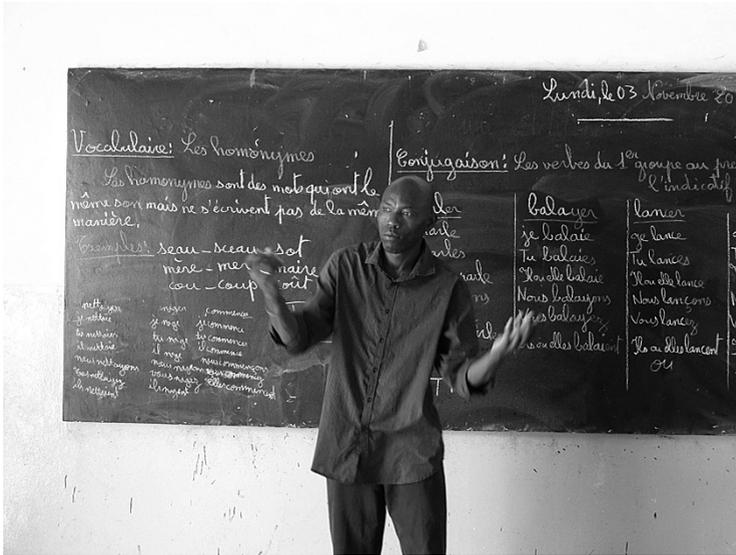 Lundi, le 03 Novembre 20
Vocabulaire: Les homonymes
Les homonymes sont des mots qui ont le
même son mais ne s'écrivent pas de la mêm
manière.
Exemples: seau - sceau - sot
mère - mer - maire
cou - coup - coût
nettoyer
je nettoie
tu nettoies
il nettoie
nous nettoyons
vous nettoyez
ils nettoient
je nage
tu nages
il nage
nous nageons
vous nagez
ils nagent
commencer
je commence
tu commences
il commence
nous commençons
elles commencent
Conjugaison: Les verbes du 1er groupe au pré
l'indicatif
ler
arle
arles
arle
ns
balayer
je balaie
Tu balaies
Il ou elle balaie
Nous balayons
balayez
Ils ou elles balaient
lancer
je lance
Tu lances
Il ou elle lance
Nous lançons
Vous lancez
Ils ou elles lancent
ou